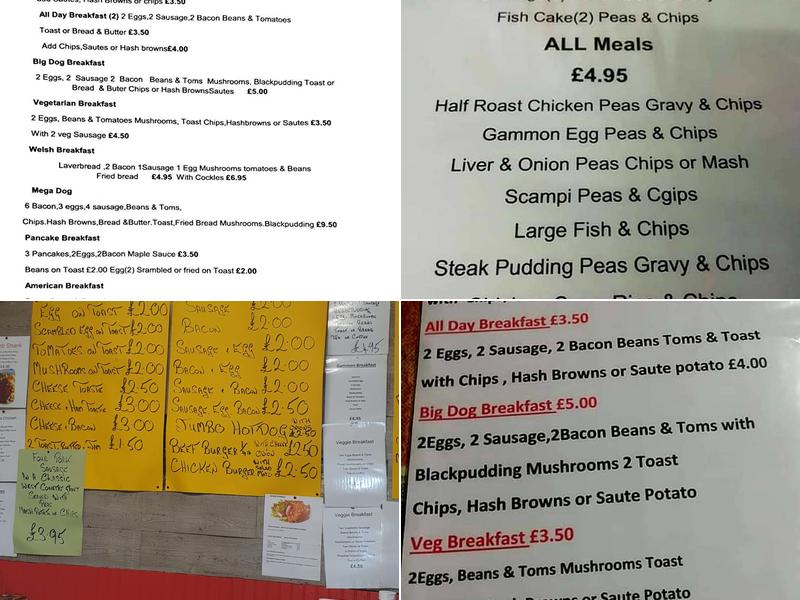 All Day Breakfast (2) 2 Eggs,2 Sausage,2 Bacon Beans & Tomatoes
Toast or Bread & Butter £3.50
Add Chips,Sautes or Hash browns£4.00
Big Dog Breakfast
2 Eggs, 2 Sausage 2 Bacon Beans & Toms Mushrooms, Blackpudding Toast or
Bread & Buter Chips or Hash BrownsSautes £5.00
Vegetarian Breakfast
2 Eggs, Beans & Tomatoes Mushrooms, Toast Chips,Hashbrowns or Sautes £3.50
With 2 veg Sausage £4.50
Welsh Breakfast
Laverbread ,2 Bacon 1Sausage 1 Egg Mushrooms tomatoes & Beans
Fried bread £4.95 With Cockles £6.95
Mega Dog
6 Bacon,3 eggs,4 sausage,Beans & Toms,
Chips.Hash Browns,Bread &Butter.Toast,Fried Bread Mushrooms.Blackpudding £9.50
Pancake Breakfast
3 Pancakes,2Eggs,2Bacon Maple Sauce £3.50
Beans on Toast £2.00 Egg(2) Srambled or fried on Toast £2.00
American Breakfast
Fish Cake(2) Peas & Chips
ALL Meals
£4.95
Half Roast Chicken Peas Gravy & Chips
Gammon Egg Peas & Chips
Liver & Onion Peas Chips or Mash
Scampi Peas & Cgips
Large Fish & Chips
Steak Pudding Peas Gravy & Chips
Egg on Toast £2.00
Scrambled Egg on Toast £2.00
Tomatoes on Toast £2.00
Mushrooms on Toast £2.00
Cheese Toastie £2.50
Cheese & Ham Toastie £3.00
Cheese & Bacon £3.00
£1.50
Sausage £2.00
Bacon £2.00
Sausage & Egg £2.00
Bacon & Egg £2.00
Sausage & Bacon £2.00
Sausage Egg Bacon £2.50
Jumbo Hotdog
Beef Burger with cheese onion £2.50
Chicken Burger with salad mayo £2.50
Four Pork
Sausage
In a Classic
West Country
Served with
Peas
Mash Potato or Chips
£3.95
£4.95
Gammon Breakfast
Veggie Breakfast
Veggie Breakfast
All Day Breakfast £3.50
2 Eggs, 2 Sausage, 2 Bacon Beans Toms & Toast
with Chips , Hash Browns or Saute potato £4.00
Big Dog Breakfast £5.00
2Eggs, 2 Sausage,2Bacon Beans & Toms with
Blackpudding Mushrooms 2 Toast
Chips, Hash Browns or Saute Potato
Veg Breakfast £3.50
2Eggs, Beans & Toms Mushrooms Toast
Browns or Saute Potato